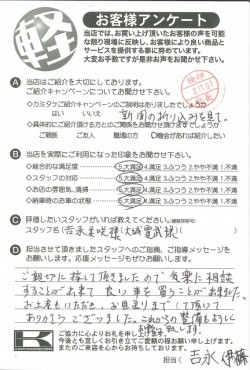 軽
お客様アンケート
当店では、お買い上げ頂いたお客様の声を可能
な限り現場に反映し、お客様により良い商品と
サービスを提供する事に努めています。
大変お手数ですが是非お声をお聞かせ下さい。
A 当店はご紹介を大切にしております。
ご紹介キャンペーンについてお聞かせ下さい。
◇カミタケご紹介キャンペーンのご説明はありましたでしょうか
はい いいえ 新聞の折り込みを見て。
◇具体的にご紹介頂ける方とのご関係をお聞かせ頂けますでしょうか
ご親族 ご友人 職場の方 機会があれば紹介したい
B 当店を実際にご利用になった印象をお聞かせ下さい。
◇総合的な満足度 5.大満足 4.満足 3.ふつう 2.やや不満 1.不満
◇スタッフの対応 5.大満足 4.満足 3.ふつう 2.やや不満 1.不満
◇お店の雰囲気、清潔 5.大満足 4.満足 3.ふつう 2.やや不満 1.不満
◇納車時のお車の状態 5.大満足 4.満足 3.ふつう 2.やや不満 1.不満
C 評価したいスタッフがいれば教えてください。(複数回答可)
スタッフ名(吉永美咲様、大城
D 担当させて頂きましたスタッフへのご指摘、ご指導メッセージを
お願いします。応援メッセージもぜひお願いします。
ご親切に接して頂きましたので気楽に相談
することが出来て良い車を買うことが出来ました。
お土産もいただき、お見送りまでして頂いて
ありがとうございました。これからの整備もよろしく
お願い致します。
ご協力に心よりお礼を申し上げます。
今後とも宜しくお引き立てご愛顧の程お願い申し上げます。
またのご来店を心からお待ちしております。
担当( 吉永 伊藤